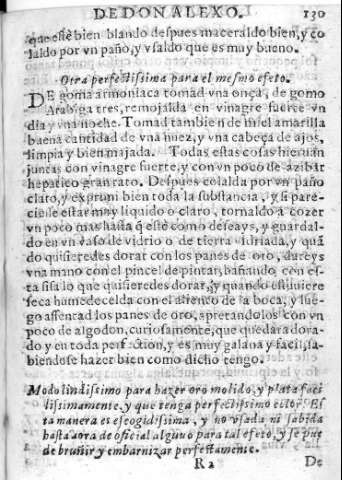 DE DON ALEXO. 130
que estè bien blando despues maceraldo bien, y co
laldo por vn paño, y vsaldo que es muy bueno.
Otra perfectissima para el mesmo efeto.
DE goma armoniaca tomad vna onça, de gomo
Arabiga tres, remojalda en vinagre fuerte vn
dia y vna noche. Tomad tambien de miel amarilla
buena cantidad de vna nuez, y vna cabeça de ajos,
limpia y bien majada. Todas estas cosas hieruan
juntas con vinagre fuerte, y con vn poco de azibar
hepatico gran rato. Despues colalda por vn paño
claro, y exprimi bien toda la substancia, y si pare-
ciesse estar muy liquido o claro, tornaldo a cozer
vn poco mas hasta q̃ estè como desseays, y guardal-
do en vn vaso de vidrio o de tierra vidriada, y quã
do quisieredes dorar con los panes de oro, dareys
vna mano con el pincel de pintar, bañando con es-
ta sisa lo que quisieredes dorar, y quando estuuiere
seca humedecelda con el aliento de la boca, y lue-
go assentad los panes de oro, apretandolos con vn
poco de algodon, curiosamente, que quedara dora-
do y en toda perfection, y es muy galana y facil, sa-
biendose hazer bien como dicho tengo.
Modo lindissimo para hazer oro molido, y plata faci
lissimamente, y que tenga perfectissimo color. Es
ta manera es escogidissima, y no vsada ni sabida
hasta aora de oficial alguno para tal efeto, y se pue
de bruñir y embarnizar perfectamente.
R 2 De